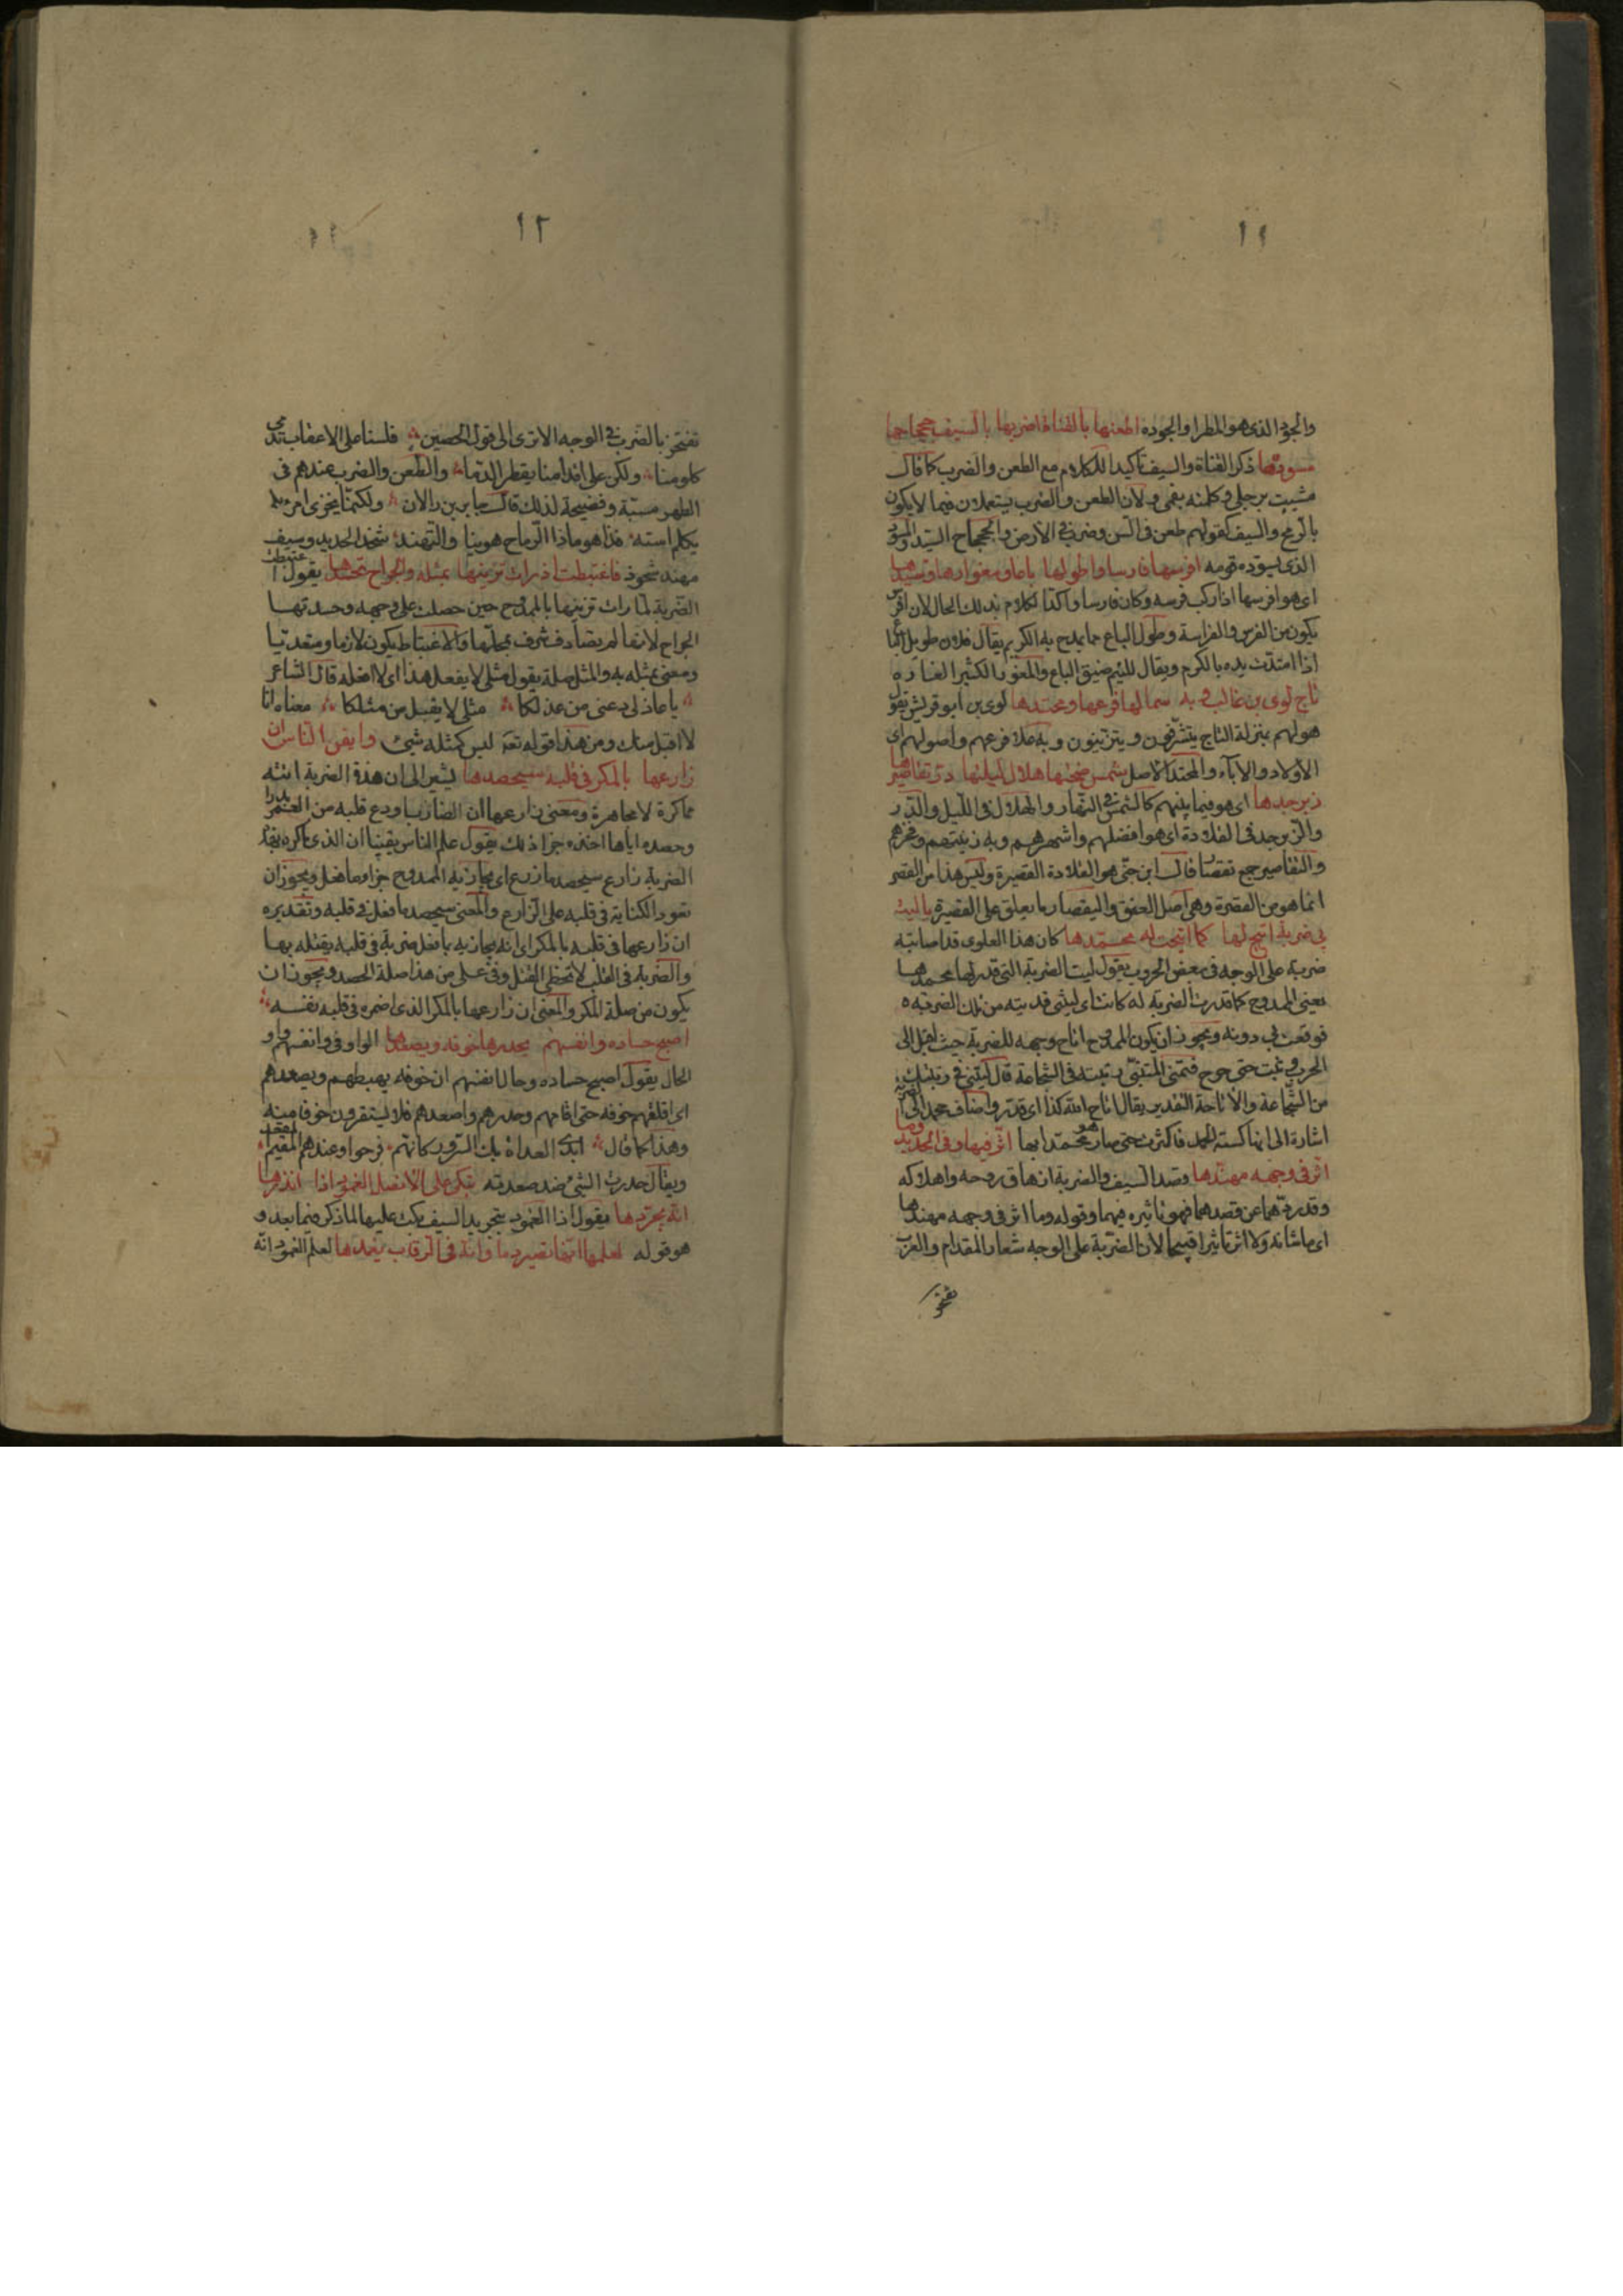 ١١
والجود الذى هو المطر او الجودة اطعنها بالقناة اضربها بالسيف جحجاحها
مسودها ذكر القناة والسيف تأكيدا للكلام مع الطعن والضرب كما قال
مشيت برجلى وكلمته بفمى ولان الطعن والضرب يستعملان فيما لا يكون
بالرمح والسيف كقولهم طعن فى السن وضرب فى الارض والجحجاح السيد والمسود
الذى يسوده قومه افرسها فارسا واطولها باعا ومغوارها وسيدها
اى هو افرسها اذا ركب فرسه وكان فارسا واكد الكلام بذلك الحال لان افرس
يكون من الفرس والفراسة وطول الباع مما يمدح به الكريم يقال فلان طويل الباع
اذا امتدت يده بالكرم ويقال للئيم ضيق الباع والمغوار الكثير الغارة
تاج لوى بن غالب وبه سما لها فرعها ومحتدها لوى بن ابو قريش يقول
هو لهم بمنزلة التاج يتشرفون ويتزينون وبه علا فرعهم واصولهم اى
الاولاد والآباء والمحتد الاصل شمس ضحيها هلال ليلتها در تقاصيرها
زبرجدها اى هو فيما بينهم كالشمس فى النهار والهلال فى الليل والدر
والزبرجد فى القلادة اى هو افضلهم واشهرهم وبه زينتهم وفخرهم
والتقاصير جمع تقصار قال ابن جنى هو القلادة القصيرة وليس هذا من القصر
انما هو من القصرة وهى اصل العنق والتقصار ما يعلق على القصرة يا ليت
بى ضربة اتيح لها كما اتيحت له محمدها كان هذا العلوى قد اصابته
ضربة على الوجه فى بعض الحروب يقول ليت الضربة التى قدر لها محمدها
يعنى الممدوح كما قدرت الضربة له كانت اى ليتنى فديته من تلك الضربة
فوقعت بى دونه ويجوز ان يكون الممدوح اتاح وجهه للضربة حيث اقبل الى
الحرب وثبت حتى جرح فتمنى المتنبى رتبته فى الشجاعة قال ليتنى فى رتبتك
من الشجاعة والاتاحة التقدير يقال اتاح الله كذا اى قدر واضاف محمد الى الضربة
اشارة الى انها كسته الحمد فاكثرت حتى صار هو محمدا بها اثر فيها وفى الحديد وما
اثر فى وجهه مهندها قصد السيف والضربة ازهاق روحه واهلاكه
وقد ردهما عن قصدهما فهو تاثيره فيهما وقوله وما اثر فى وجهه مهندها
اى ما شانه ولا اثر تاثيرا قبيحا لان الضربة على الوجه شعار المقدام والعرب
تفتخر
١٢
تفتخر بالضرب فى الوجه الا ترى الى قول الحصين فلسنا على الاعقاب تدمى
كلومنا ولكن على اقدامنا يقطر الدما والطعن والضرب عندهم فى
الظهر مسبة وفضيحة لذلك قال جابر بن رالان ولكنما يخزى امرؤ
يكلم استه قنا قومه اذا الرماح هوينا والتهنيد شحذ الحديد وسيف
مهند مشحوذ فاغتبطت اذ رات تزينها بمثله والجراح تحسدها يقول اغتبطت
الضربة لما رات تزينها بالممدوح حين حصلت على وجهه وحسدتها
الجراح لانها لم تصادف شرف محلها والاغتباط يكون لازما ومتعديا
ومعنى بمثله به والمثل صلة يقول مثلى لا يفعل هذا اى لا افعله قال الشاعر
يا عاذلى دعنى من عذلكا مثلى لا يقبل من مثلكا معناه انا
لا اقبل منك ومن هذا قوله تعه ليس كمثله شئ وايقن الناس ان
زارعها بالمكر فى قلبه سيحصدها يشير الى ان هذه الضربة اتته
مماكرة لا مجاهرة ومعنى زارعها ان الضارب اودع قلبه من الغمر بذرا
وحصده اياها اخذه جزا ذلك يقول علم الناس يقينا ان الذى ماكره بهذه
الضربة زارع سيحصد ما زرع اى يجازيه الممدوح جزا وما فعل ويجوز ان
تعود الكناية فى قلبه على الزارع والمعنى سيحصد ما فعل فى قلبه وتقديره
ان زارعها فى قلبه بالمكر اى انه يجازيه بما فعل ضربة فى قلبه يقتله بها
والضربة فى القلب لا تخطئ القتل وفى على من هذا صلة الحصد ويجوز ان
يكون من صلة المكر والمعنى ان زارعها بالمكر الذى اضمره فى قلبه نفسه
اصبح حساده وانفسهم يحدرها خوفه ويصعدها الواو فى وانفسهم واو
الحال يقول اصبح حساده وحال انفسهم ان خوفه يهبطهم ويصعدهم
اى اقلقهم خوفه حتى اقامهم وحدرهم واصعدهم فلا يستقرون خوفا منه
وهذا كما قال ابدى العداة بك السرور كانهم فرحوا وعندهم المقيم المقعد
ويقال حدرت الشئ ضد صعدته تبكى على الانصل الغمود اذا انذرها
انه يجردها يقول اذا الغمود بتجريد السيف بكت عليها لما ذكر فيما بعد و
هو قوله لعلمها انها تصير دما وانه فى الرقاب يغمدها لعلم الغمود انه